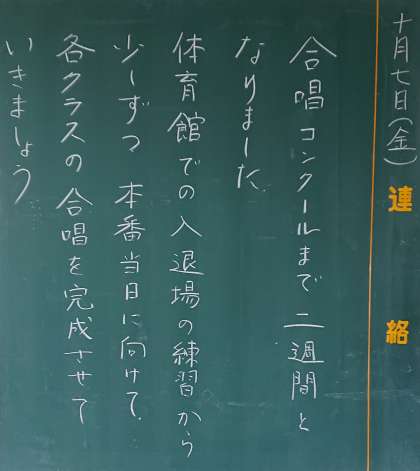 十月七日(金)
連絡
合唱コンクールまで二週間と
なりました
体育館での入退場の練習から
少しずつ 本番当日に向けて、
各クラスの合唱を完成させて
いきましょう